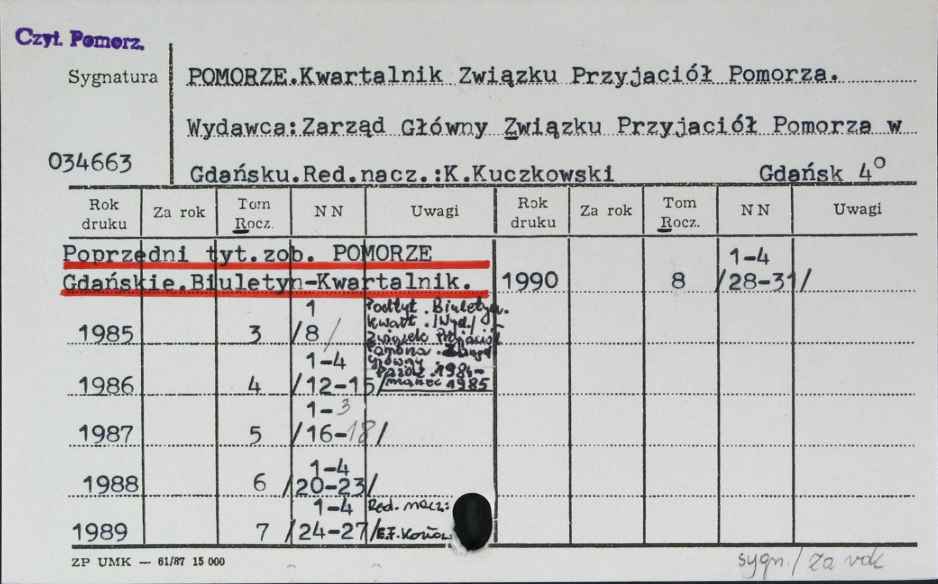 Czyt. Pomorz.
Sygnatura
POMORZE.Kwartalnik Związku Przyjaciół Pomorza.
Wydawca:Zarząd Główny Związku Przyjaciół Pomorza w
034663
Gdańsku.Red.nacz.:K.Kuczkowski Gdańsk 4°
Rok druku Za rok Tom Rocz. NN Uwagi Rok druku Za rok Tom Rocz. NN Uwagi
Poprzedni tyt.zob. POMORZE
Gdańskie.Biuletyn-Kwartalnik.
1990 8 1-4 /28-31/
1985 3 1 /8/
Podtyt. Biuletyn.
Kwart. /Wyd./
Związek Przyjaciół
Pomorza. Zarząd
Główny
1984-
marzec 1985
1986 4 1-4 /12-15/
1987 5 1-3 /16-18/
1988 6 1-4 /20-23/
1989 7 1-4 /24-27/ Red. nacz:
ZP UMK — 61/87 15 000
sygn./za rok